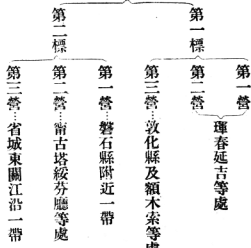 第一標
第一營
第二營
琿春延吉等處
第三營…敦化縣及額木索等處
第二標
第一營…磐石縣附近一帶
第二營…甯古塔綏芬廳等處
第三營…省城東關江沿一帶